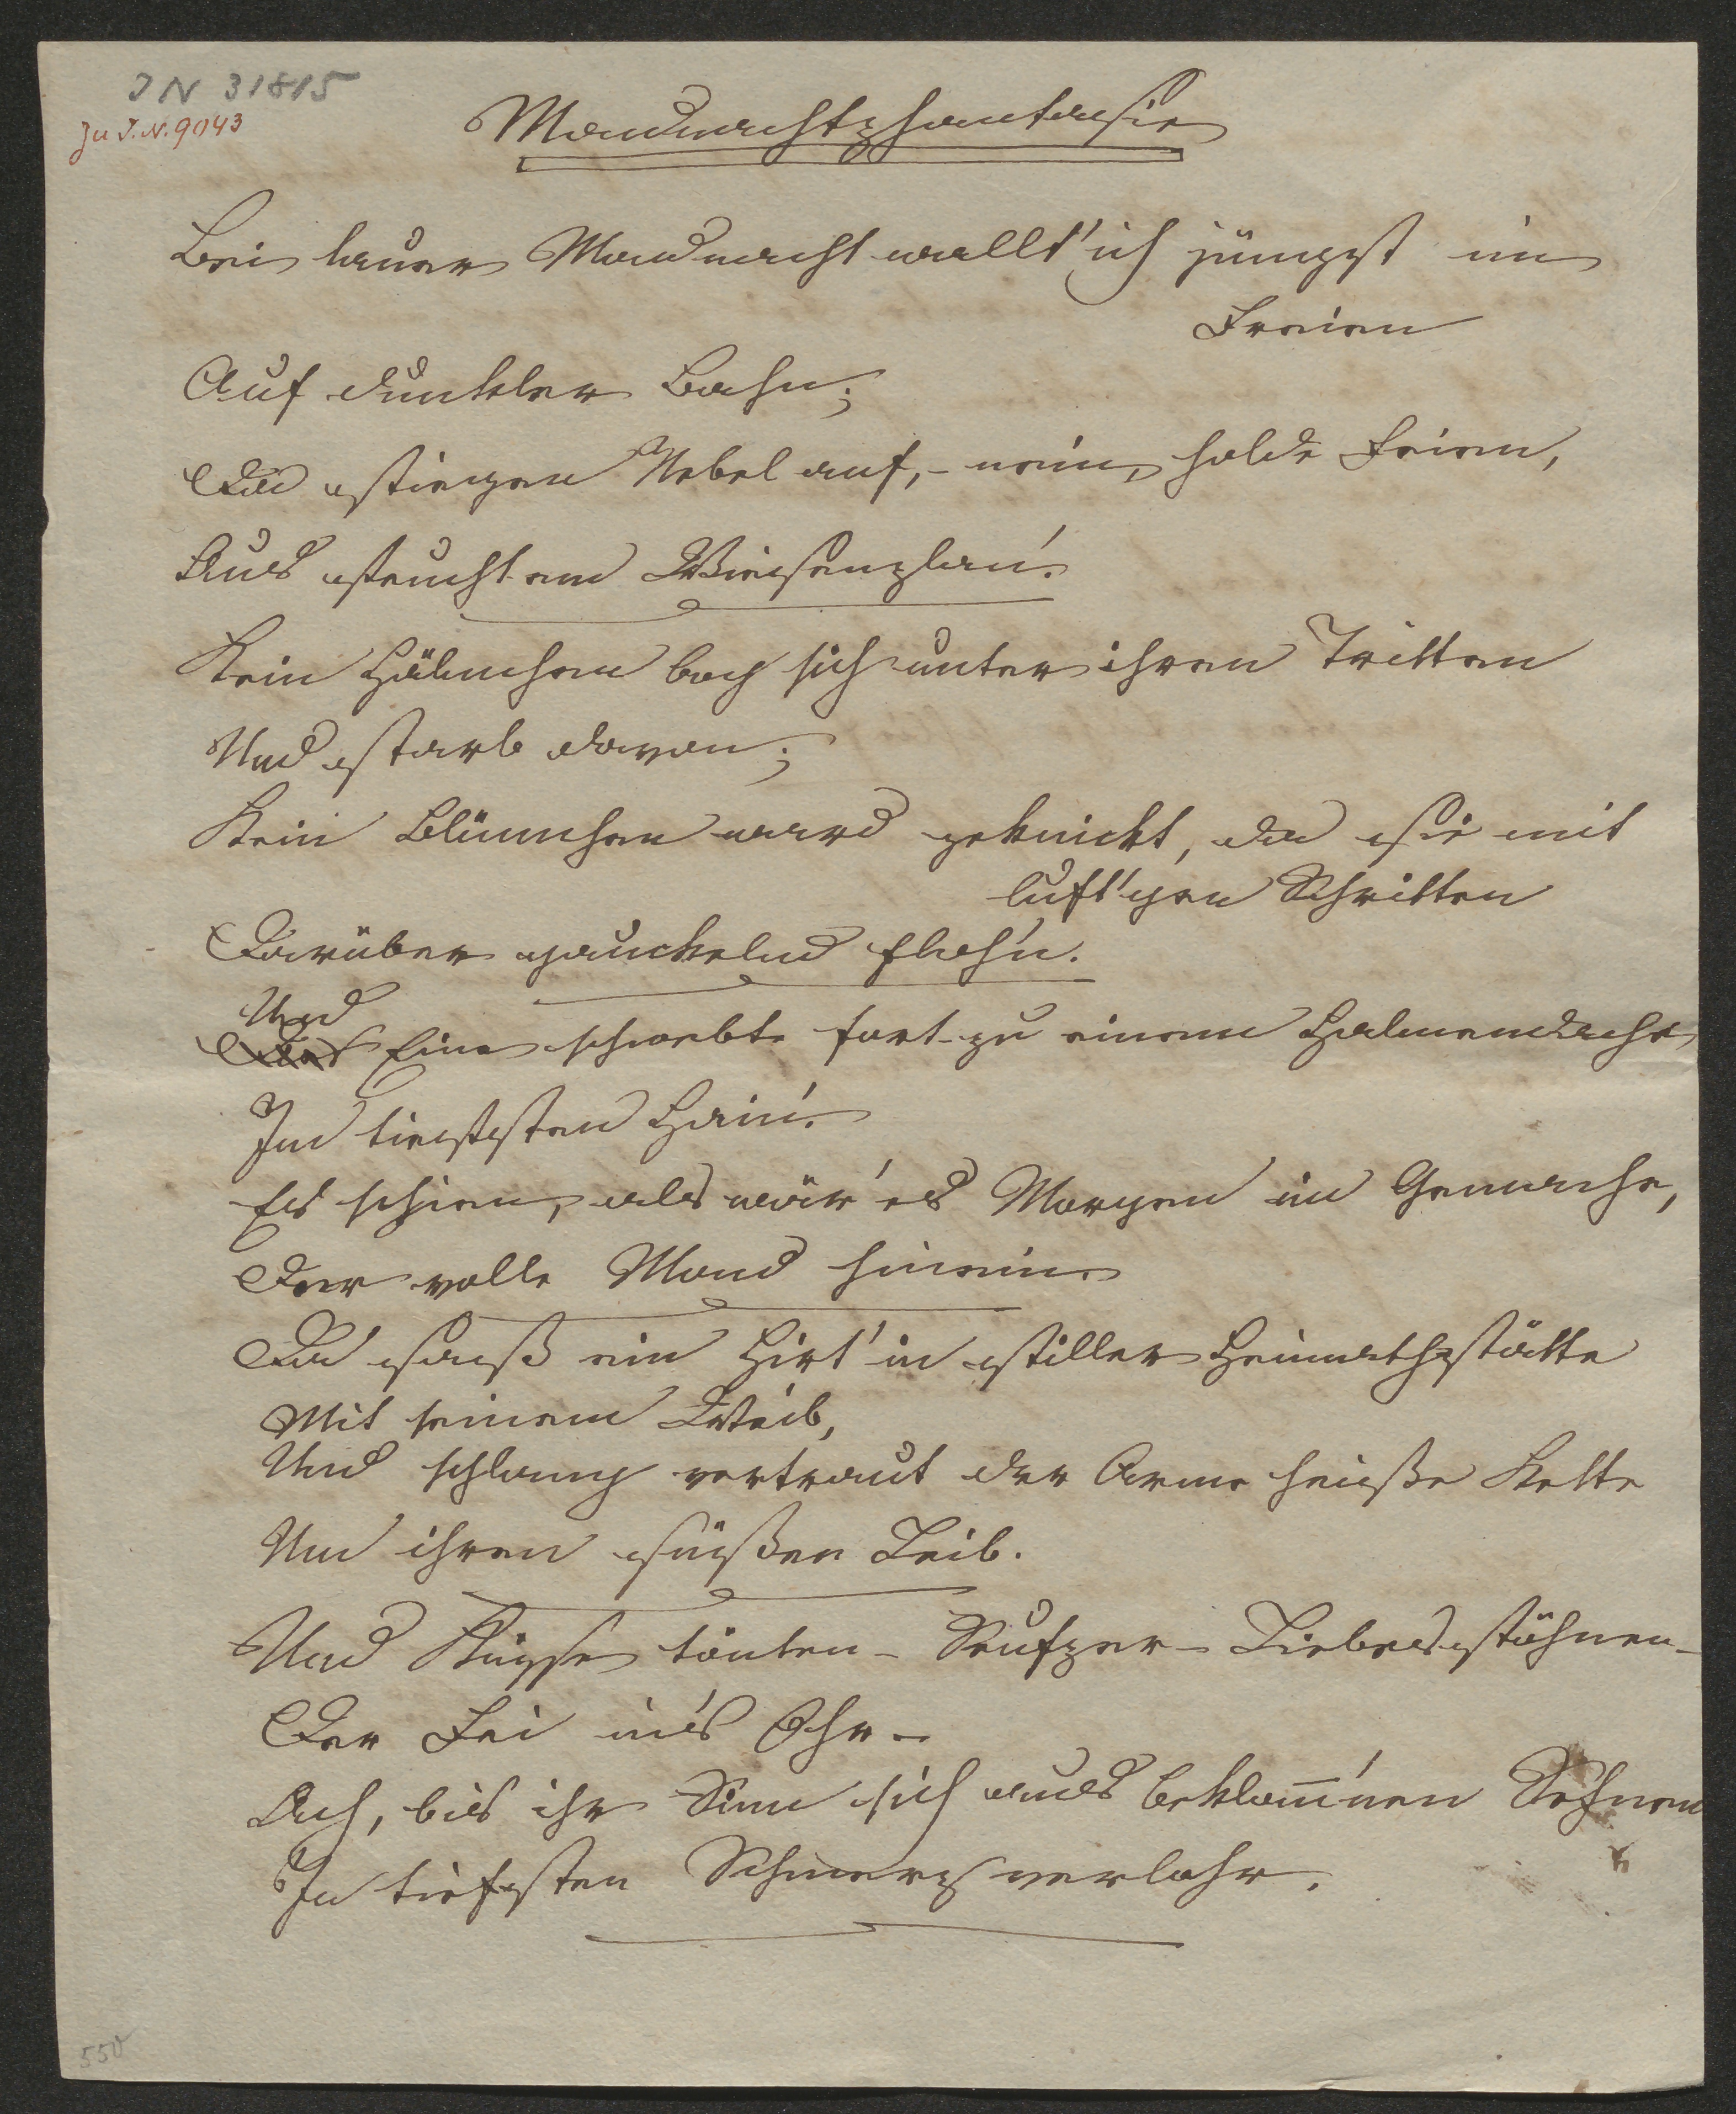 IN 31815
Zu I.N. 9043
Mondnachtphantasie
Bei lauer Mondnacht wallt' ich jüngst im
Freien
Auf dunkler Bahn;
Da stiegen Nebel auf, – nein, holde Feien,
Aus feuchtem Wiesenplan.
Kein Hälmchen bog sich unter ihren Tritten
Und starb davon;
Kein Blümchen ward geknickt, da sie mit
luft'gen Schritten
Darüber gauckelnd floh'n.
Und
Eine schwebte fort zu einem Halmendache
Im tiefsten Hain.
Es schien, als wär' es Morgen im Gemache,
Der volle Mond hinein.
Da saß ein Hirt' in stiller Heimathstätte
Mit seinem Weib,
Und schlang vertraut der Arme heiße Kette
Um ihren süßen Leib.
Und Küsse tönten – Seufzer – Liebesstöhnen –
Der Fei in's Ohr –
Ach, bis ihr Sinn sich aus beklom̅'nen Sehnen
In tiefsten Schmerz verlohr.
550